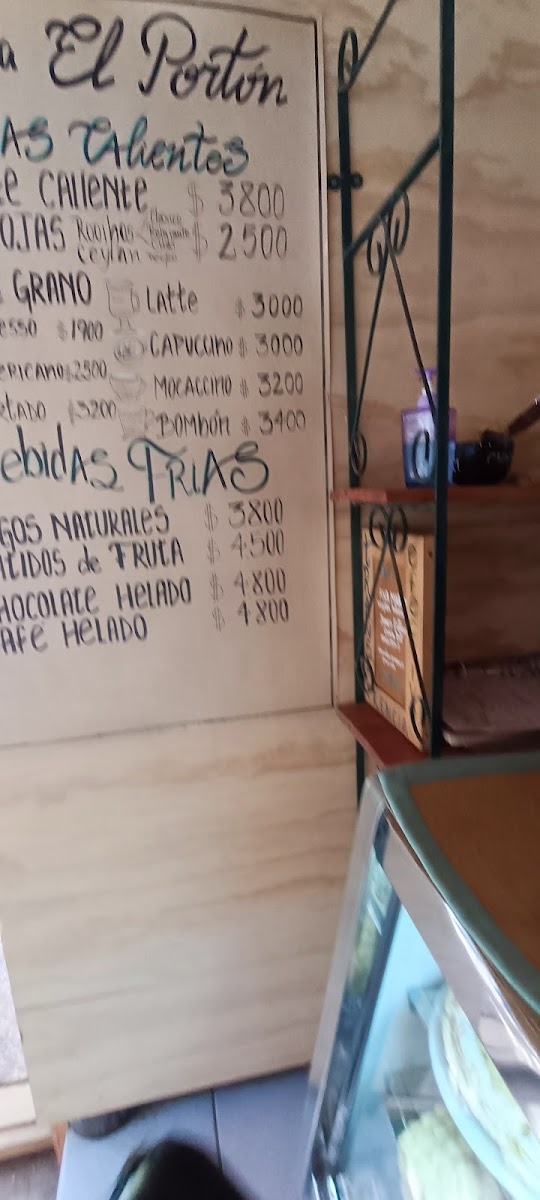 a El Portón
AS Calientes
e CAlIENTE $ 3800
OJAS Rooibos $ 2500
Ceylan
GRANO
LATTE $ 3000
esso $1900
CAPUCCINO $ 3000
ERICANO $2500
MOCACCINO $ 3200
RTADO $3200
BOMBÓN $ 3400
ebidAS FRIAS
GOS NATURALES $ 3800
TIDOS de FRUTA $ 4.500
HOCOLATE HELADO $ 4800
AFÉ HELADO $ 4800